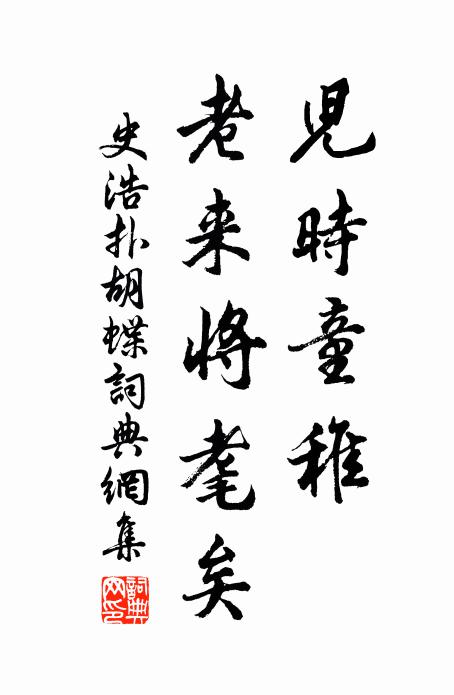 兒時童稚
老来將耄矣
史浩扑胡蝶詞典網集
詞典網印